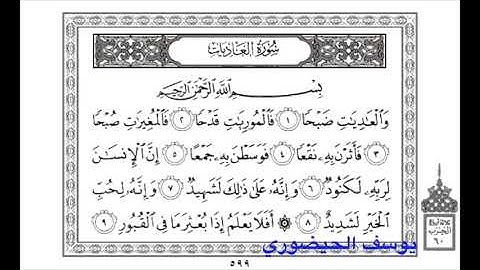 سُورَةُ الْعَادِيَاتِ
بِسْمِ اللَّهِ الرَّحْمَٰنِ الرَّحِيمِ
وَالْعَٰدِيَٰتِ ضَبْحًا ١ فَالْمُورِيَٰتِ قَدْحًا ٢ فَالْمُغِيرَٰتِ صُبْحًا
٣ فَأَثَرْنَ بِهِ نَقْعًا ٤ فَوَسَطْنَ بِهِ جَمْعًا ٥ إِنَّ الْإِنسَٰنَ
لِرَبِّهِ لَكَنُودٌ ٦ وَإِنَّهُ عَلَىٰ ذَٰلِكَ لَشَهِيدٌ ٧ وَإِنَّهُ لِحُبِّ
الْخَيْرِ لَشَدِيدٌ ٨ ۞ أَفَلَا يَعْلَمُ إِذَا بُعْثِرَ مَا فِي الْقُبُورِ ٩
الحزب
٦٠
يوسف الحيضوري
٥٩٩